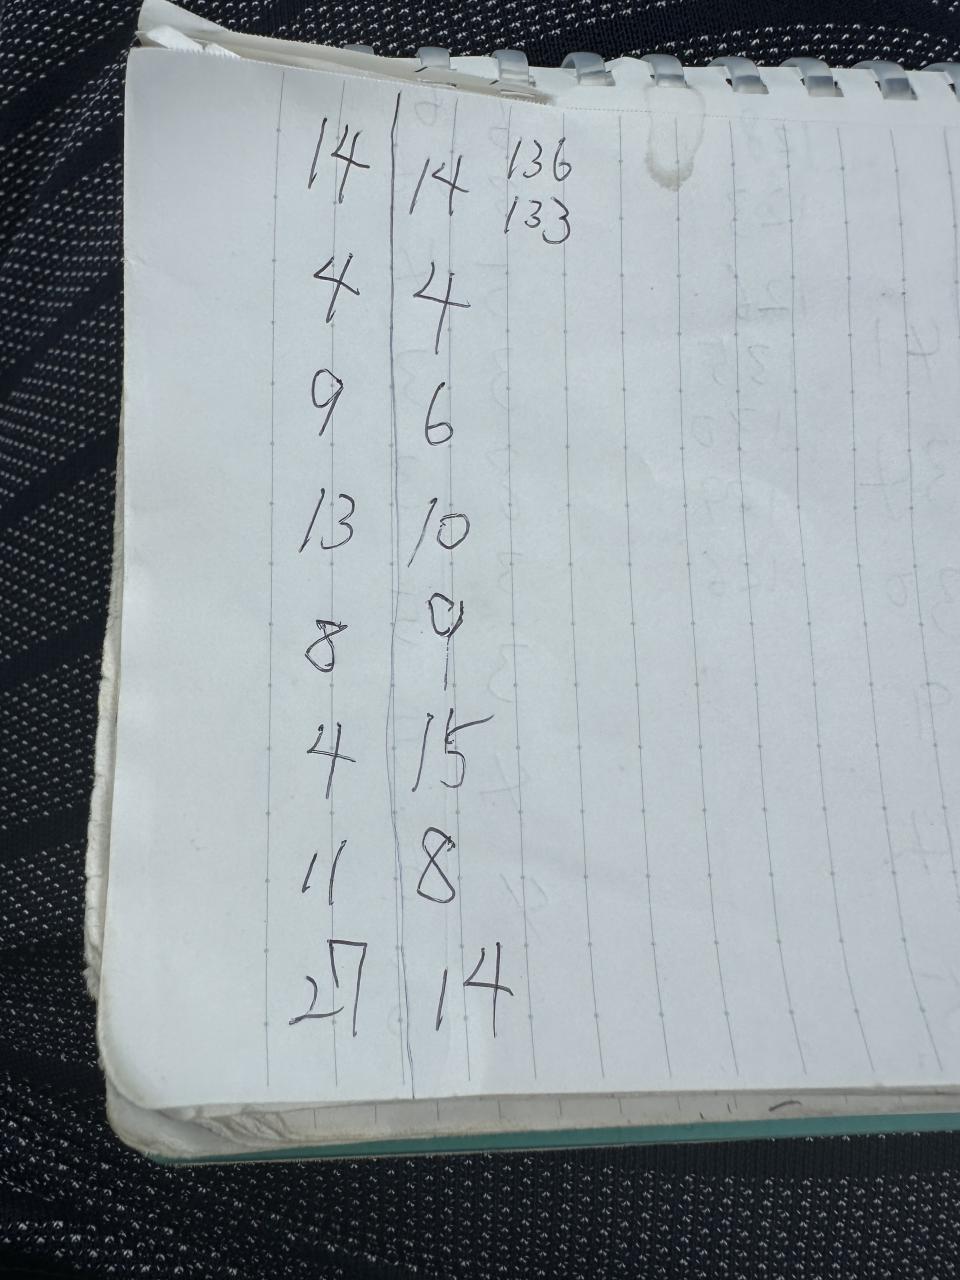 14 14 136
133
4 4
9 6
13 10
8 9
4 15
11 8
27 14